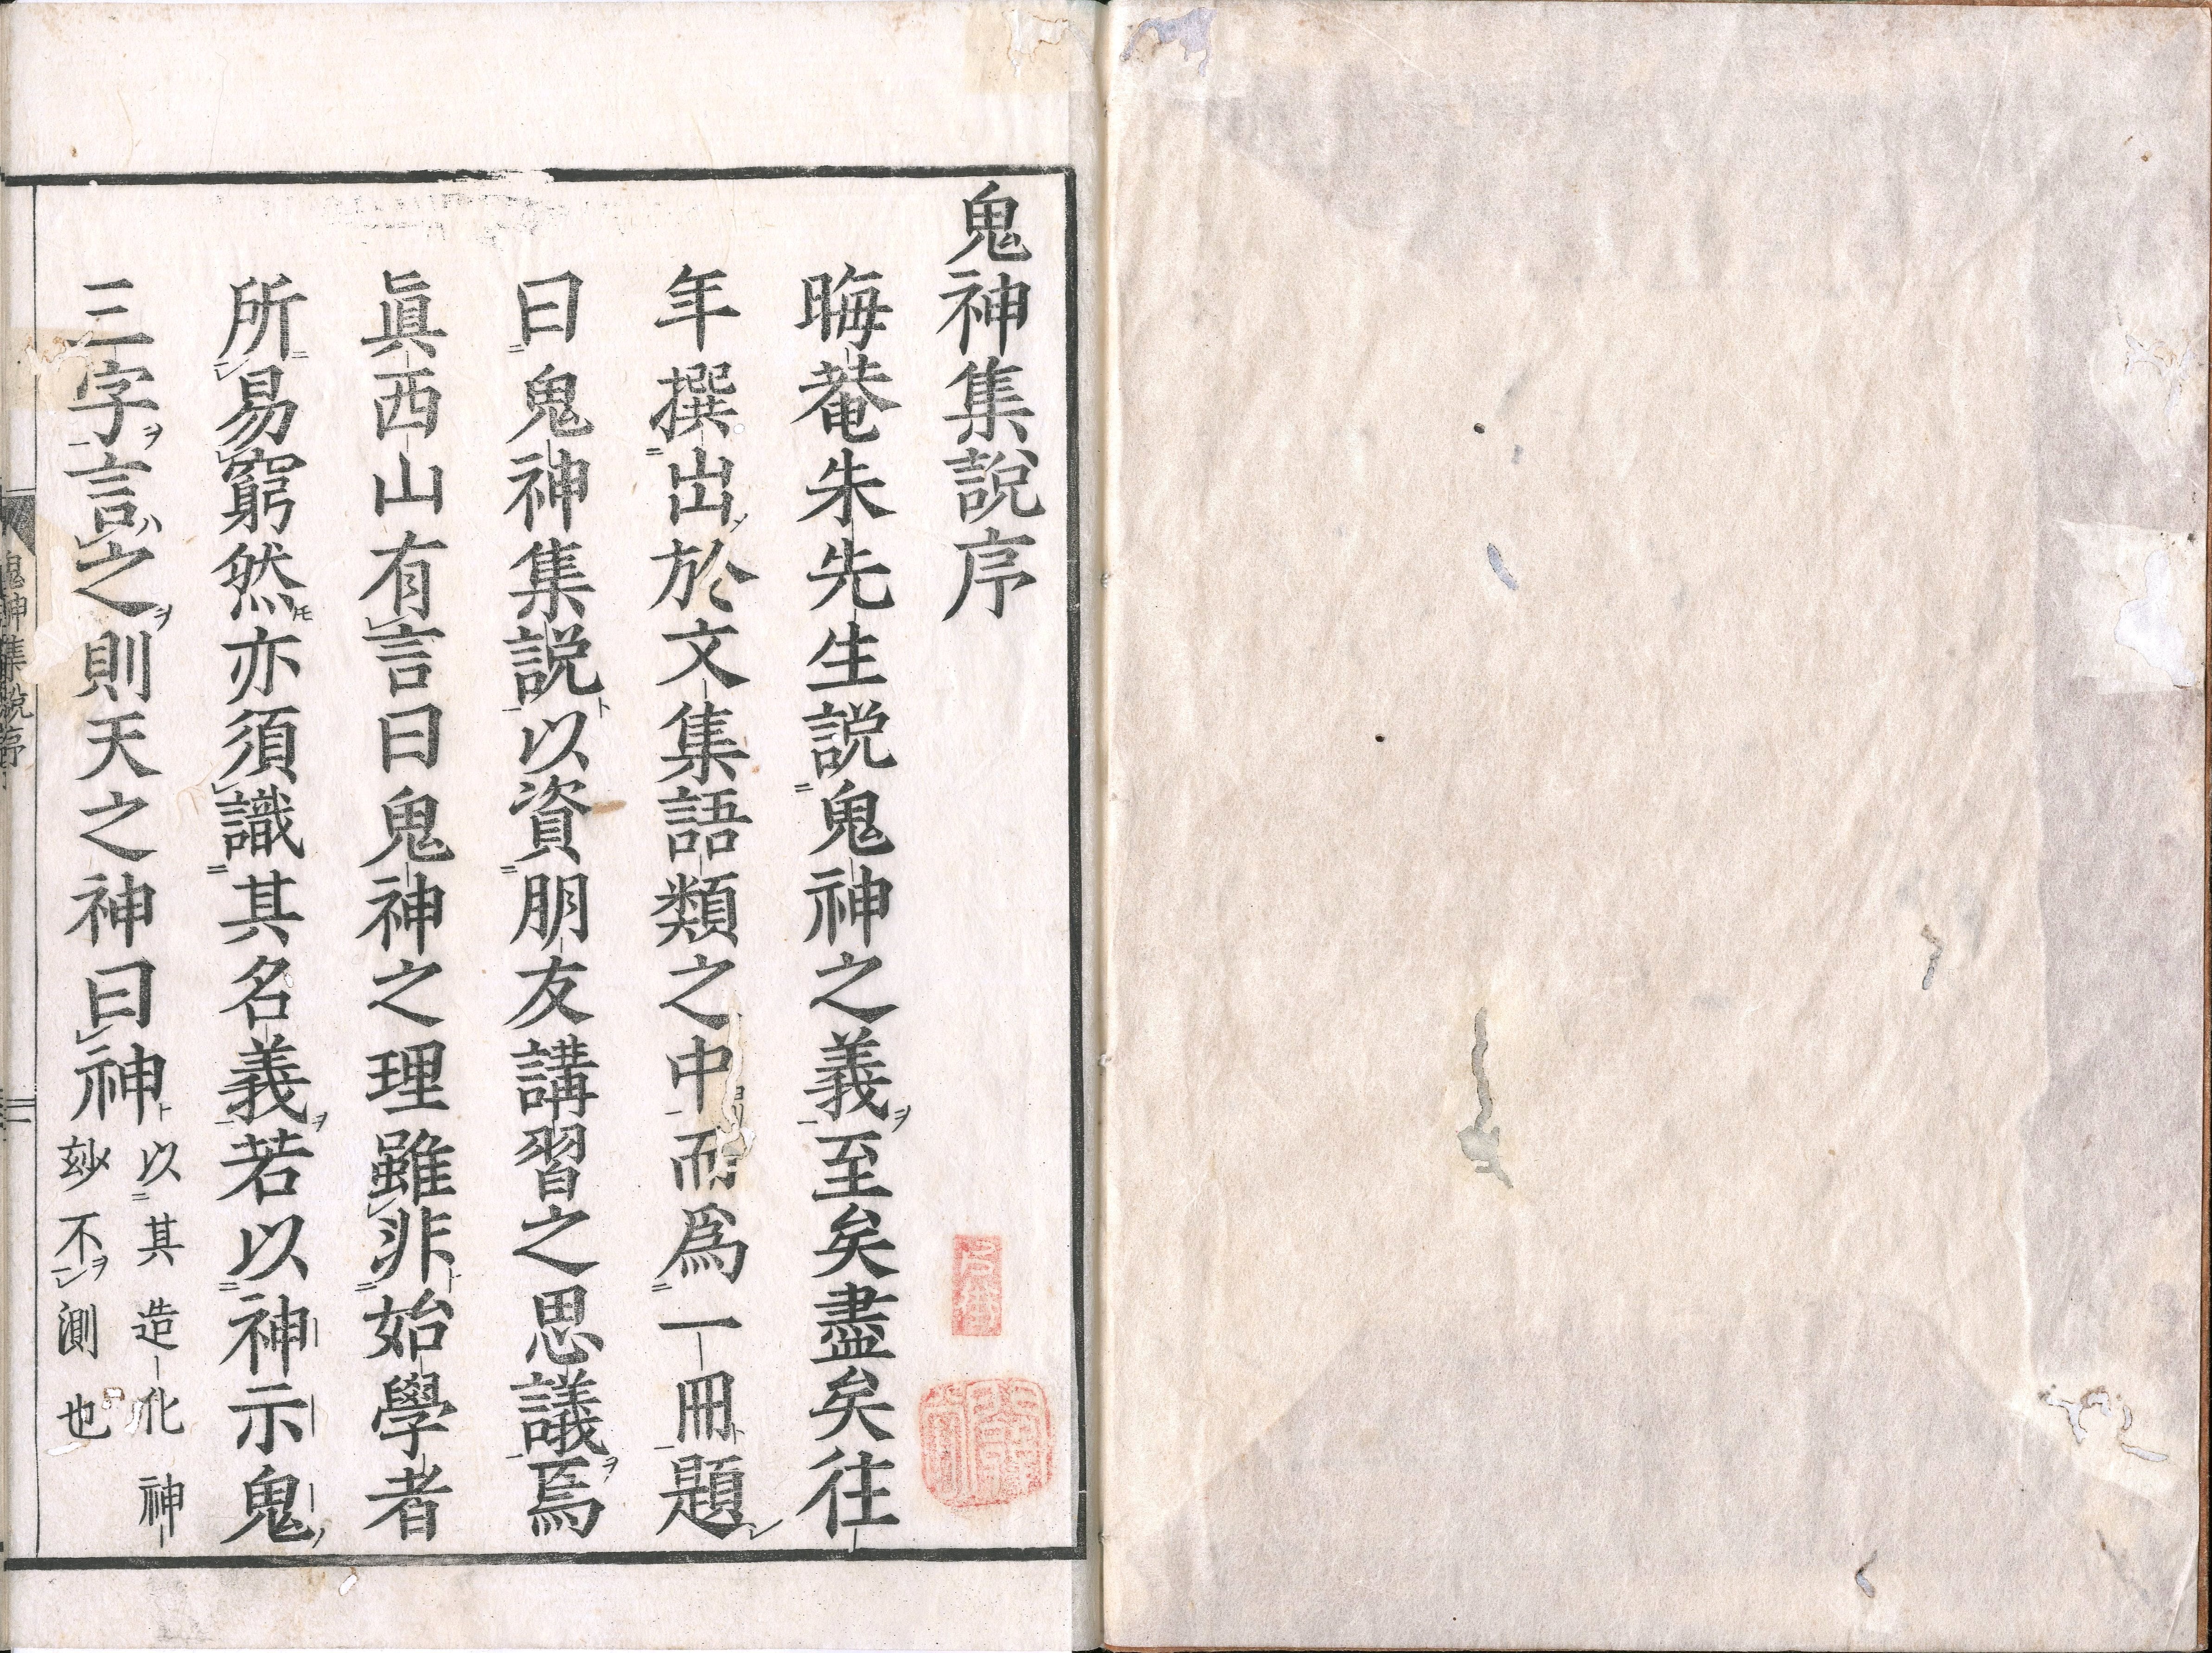 鬼神集說序
晦菴朱先生説鬼神之義至矣盡矣往
年撰出於文集語類之中而爲一冊題
曰鬼神集説以資朋友講習之思議焉
眞西山有言曰鬼神之理雖非始學者
所易窮然亦須識其名義若以神示鬼
三字言之則天之神曰神以其造化神
玅不測也
鬼神集說序